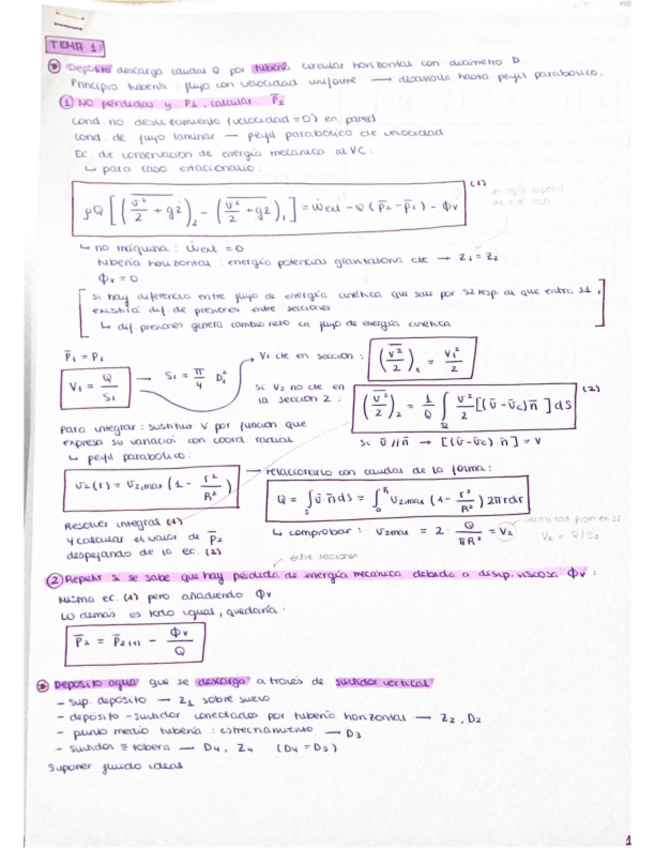 TEMA 1
* Depósito descarga caudal Q por tubería circular horizontal con diámetro D
Principio tubería: flujo con velocidad uniforme → desarrolla hasta perfil parabólico.
① NO pérdidas y P1, calcular P̅2
Cond. no deslizamiento (velocidad = 0) en pared
Cond. de flujo laminar → perfil parabólico de velocidad
Ec. de conservación de energía mecánica al VC:
↳ para caso estacionario:
ρQ [ (v²/2 + gz)₂ - (v²/2 + gz)₁ ] = Ẇext - Q (P̅2 - P̅1) - Φv (1)
↳ no máquina: Ẇext = 0
tubería horizontal: energía potencial gravitatoria cte → Z1 = Z2
Φv = 0
Si hay diferencia entre flujo de energía cinética que sale por S2 resp. al que entra S1,
existirá dif. de presiones entre secciones
↳ dif. presiones genera cambio neto en flujo de energía cinética
P̅1 = P1
V1 = Q/S1 → S1 = π/4 D1²
V1 cte en sección: (v²/2)₁ = V1²/2
Si V2 no cte en la sección 2: (v²/2)₂ = 1/Q ∫ v²/2 [(v̅ - v̅c) n̅] dS (2)
Para integrar: sustituir V por función que
expresa su variación con coord. radial
Si v̅ // n̅ → [(v̅ - v̅c) · n̅] = v
↳ perfil parabólico:
v2(r) = v2,max (1 - r²/R²)
→ relacionarlo con caudal de la forma:
Q = ∫s v̅ n̅ dS = ∫₀ᴿ v2,max (1 - r²/R²) 2πr dr
Resolver integral (1)
y calcular el valor de P̅2
despejando de la ec. (2)
↳ comprobar: v2max = 2 · Q/πR² = V2
velocidad prom en S2
V2 = Q/S2
entre secciones
② Repetir si se sabe que hay pérdida de energía mecánica debida a disip. viscosa Φv:
Misma ec. (1) pero añadiendo Φv
Lo demás es todo igual, quedaría:
P̅2 = P̅2(1) - Φv/Q
* Depósito agua que se descarga a través de surtidor vertical
- sup. depósito → Z1 sobre suelo
- depósito - surtidor conectados por tubería horizontal → Z2, D2
- punto medio tubería: estrechamiento → D3
- surtidor ≡ tobera → D4, Z4 (D4 = D3)
Suponer fluido ideal
1